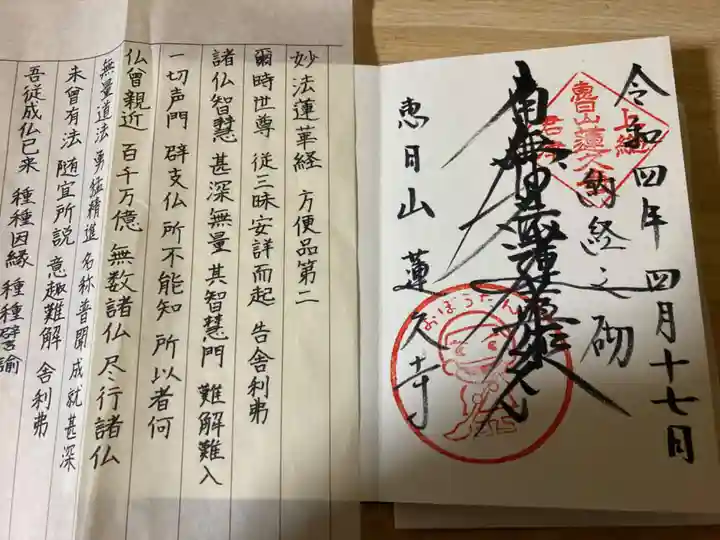 令和四年四月十七日
納経之砌
上総
恵日山蓮久
南無妙法蓮華経
おぼうたん
恵日山 蓮久寺
妙法蓮華経 方便品第二
爾時世尊 従三昧安詳而起 告舎利弗
諸仏智慧 甚深無量 其智慧門 難解難入
一切声門 辟支仏 所不能知 所以者何
仏曾親近 百千万億 無数諸仏 尽行諸仏
無量道法 勇猛精進 名称普聞 成就甚深
未曾有法 随宜所説 意趣難解 舎利弗
吾従成仏已来 種種因縁 種種譬諭